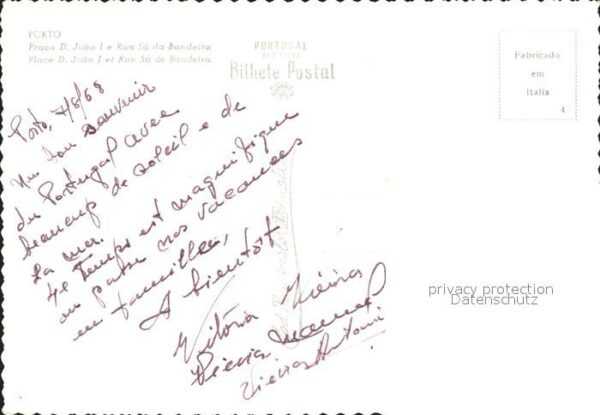 PORTO
Praça D. João I e Rua Sá da Bandeira
Place D. João I et Rua Sá de Bandeira
PORTUGAL
Bilhete Postal
Fabricado
em
Italia
4
Porto, 7/8/68
Un bon souvenir
du Portugal avec
beaucoup de soleil e de
La mer.
Le temps est magnifique
on passe nos vacances
en familles,
A bientôt
Vitória Vieira
Vieira Manuel
Vieira Antoni
privacy protection
Datenschutz